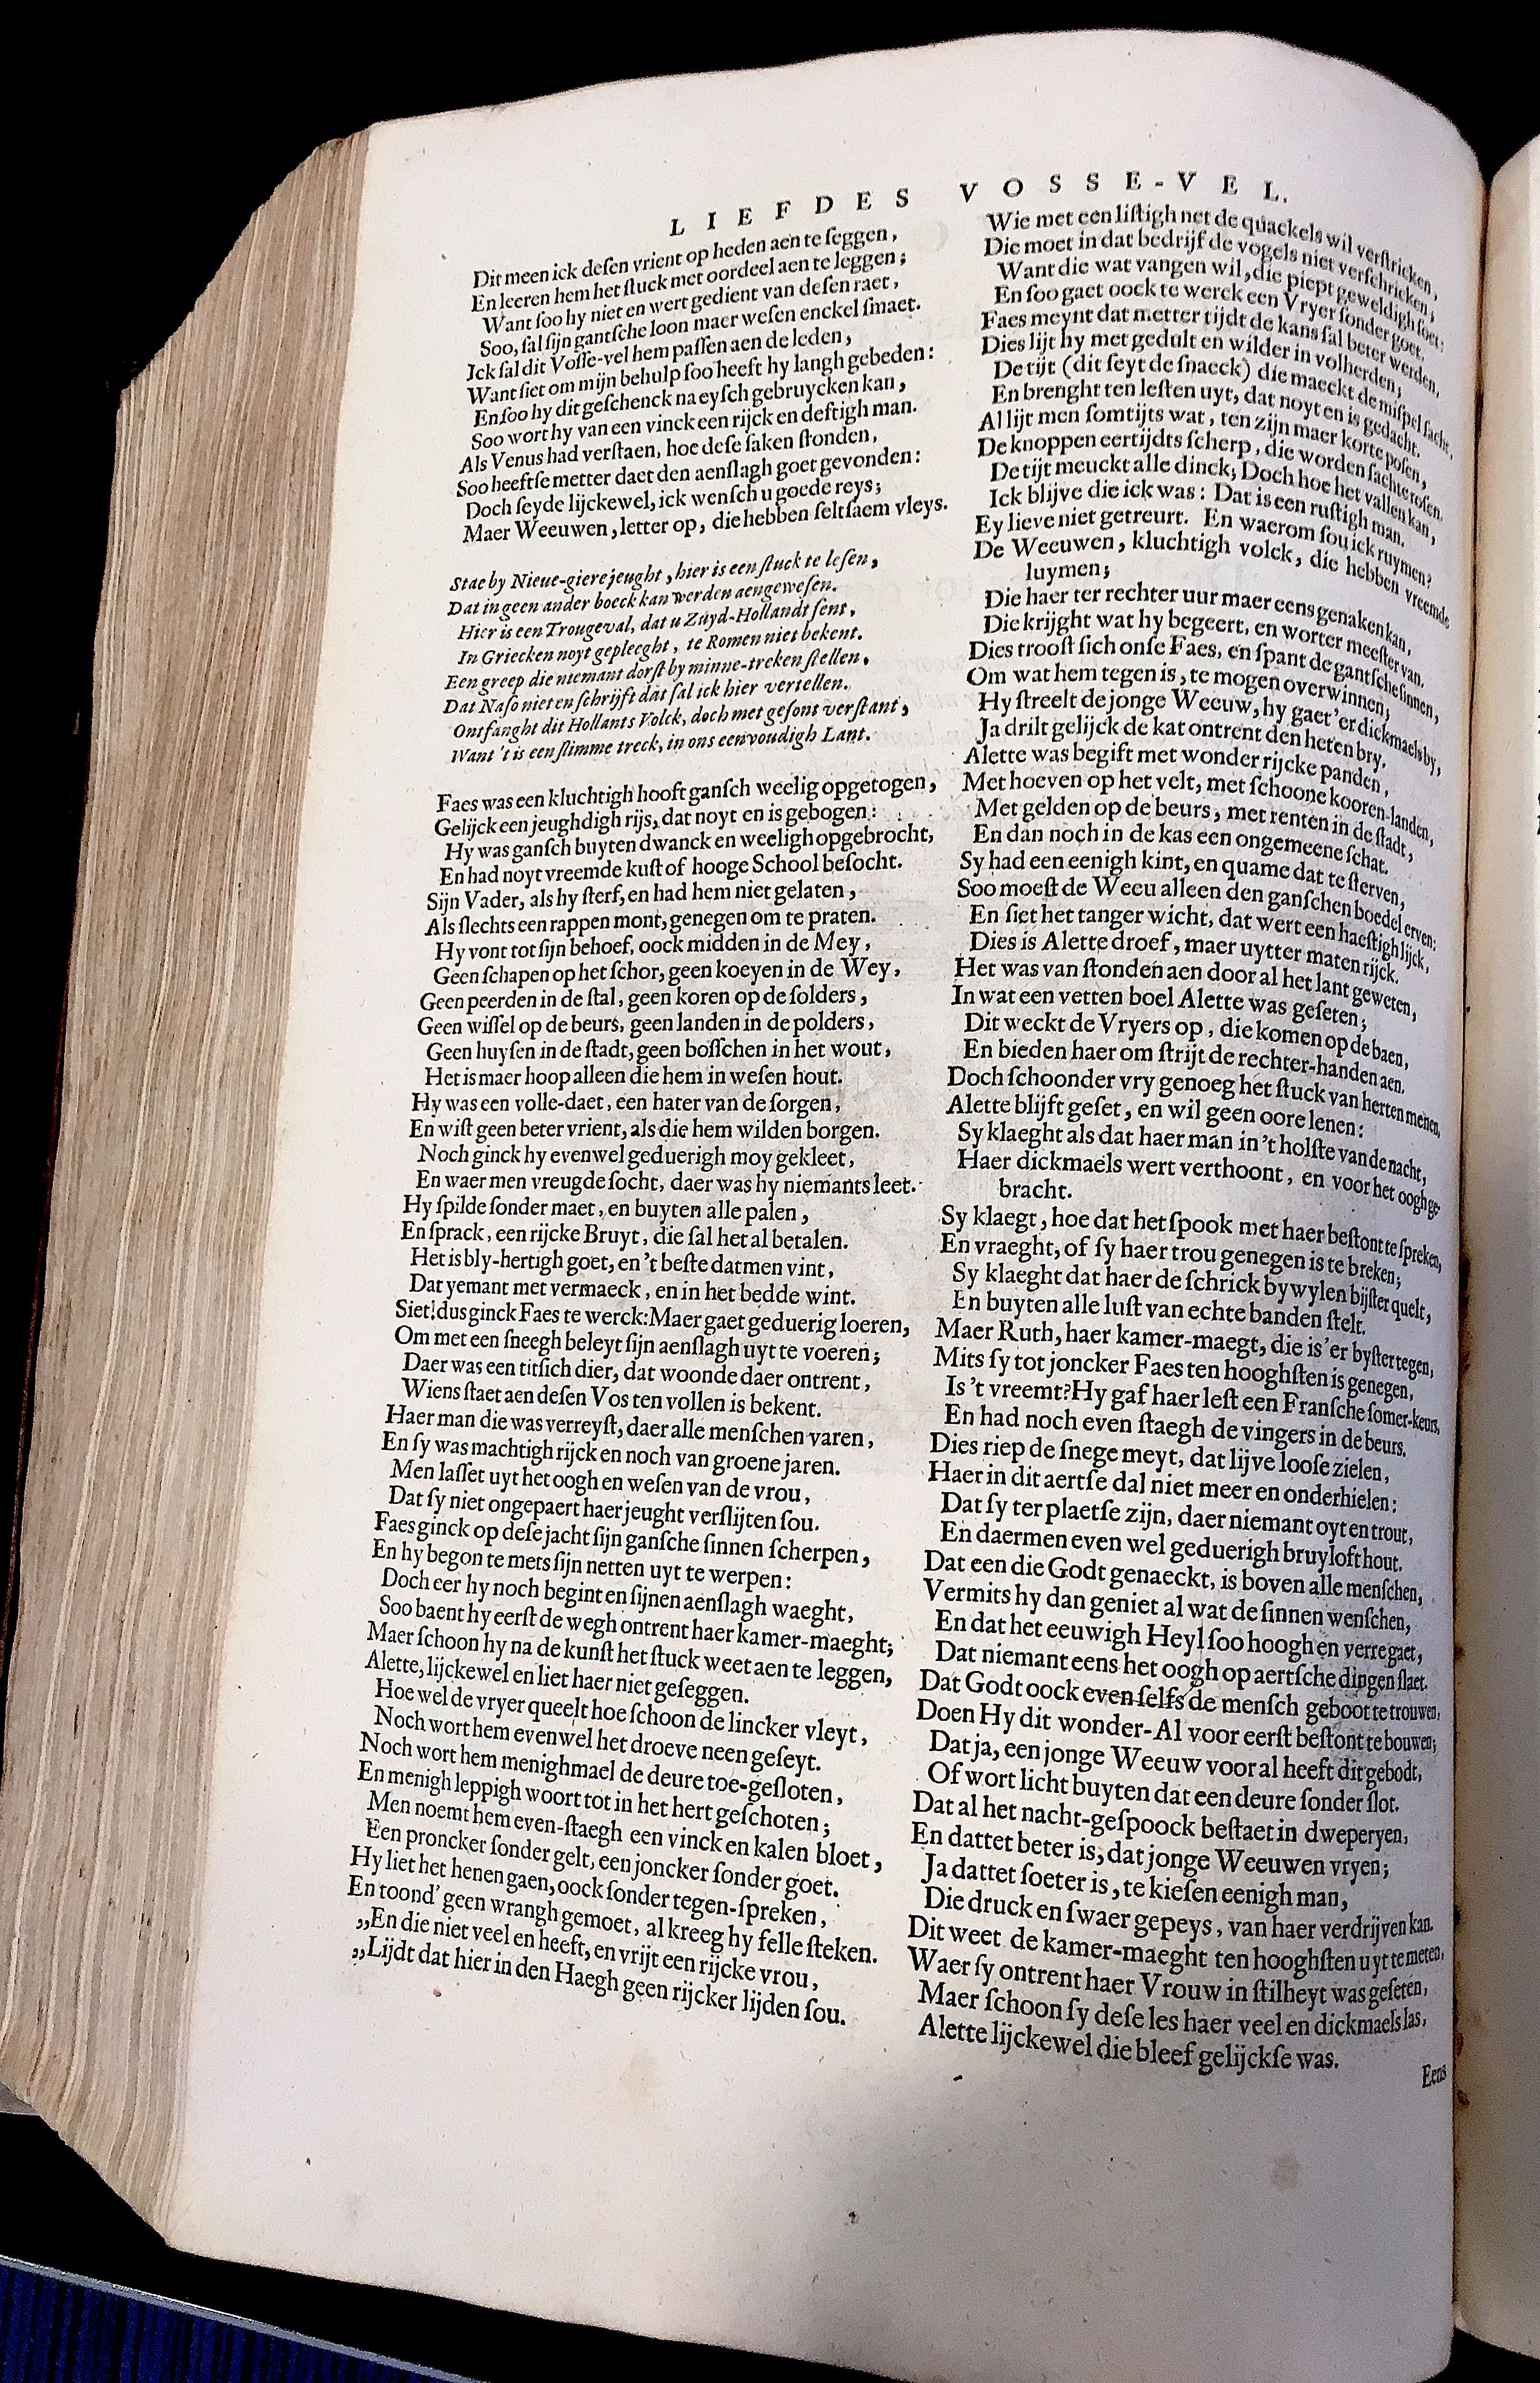 LIEFDES VOSSE-VEL.
Dit meen ick desen vrient op heden aen te seggen,
En leeren hem het stuck met oordeel aen te leggen;
Want soo hy niet en wert gedient van desen raet,
Soo, sal sijn gantsche loon maer wesen enckel smaet.
Ick sal dit Vosse-vel hem passen aen de leden,
Want siet om mijn behulp soo heeft hy langh gebeden:
En soo hy dit geschenck na eysch gebruycken kan,
Soo wort hy van een vinck een rijck en destigh man.
Als Venus had verstaen, hoe dese saken stonden,
Soo heeftse metter daet den aenslagh goet gevonden:
Doch seyde lijckewel, ick wensch u goede reys;
Maer Weeuwen, letter op, die hebben seltsaem vleys.
Stae by Nieue-giere jeught, hier is een stuck te lesen,
Dat in geen ander boeck kan werden aengewesen.
Hier is een Trougeval, dat u Zuyd-Hollandt sent,
In Griecken noyt gepleeght, te Romen niet bekent.
Een greep die niemant dorst by minne-treken stellen,
Dat Naso niet en schrijft dat sal ick hier vertellen.
Ontfanght dit Hollants Volck, doch met gesont verstant,
Want 't is een slimme treck, in ons eenvoudigh Lant.
Faes was een kluchtigh hooft gansch weelig opgetogen,
Gelijck een jeughdigh rijs, dat noyt en is gebogen:
Hy was gansch buyten dwanck en weeligh opgebrocht,
En had noyt vreemde kust of hooge School besocht.
Sijn Vader, als hy sterf, en had hem niet gelaten,
Als slechts een rappen mont, genegen om te praten.
Hy vont tot sijn behoef, oock midden in de Mey,
Geen schapen op het schor, geen koeyen in de Wey,
Geen peerden in de stal, geen koren op de solders,
Geen wissel op de beurs, geen landen in de polders,
Geen huysen in de stadt, geen bosschen in het wout,
Het is maer hoop alleen die hem in wesen hout.
Hy was een volle-daet, een hater van de sorgen,
En wist geen beter vrient, als die hem wilden borgen.
Noch ginck hy evenwel geduerigh moy gekleet,
En waer men vreugde socht, daer was hy niemants leet.
Hy spilde sonder maet, en buyten alle palen,
En sprack, een rijcke Bruyt, die sal het al betalen.
Het is bly-hertigh goet, en 't beste datmen vint,
Dat yemant met vermaeck, en in het bedde wint.
Siet! dus ginck Faes te werck: Maer gaet geduerig loeren,
Om met een sneegh beleyt sijn aenslagh uyt te voeren;
Daer was een titsich dier, dat woonde daer ontrent,
Wiens staet aen desen Vos ten vollen is bekent.
Haer man die was verreyst, daer alle menschen varen,
En sy was machtigh rijck en noch van groene jaren.
Men lasset uyt het oogh en wesen van de vrou,
Dat sy niet ongepaert haer jeught verslijten sou.
Faes ginck op dese jacht sijn gansche sinnen scherpen,
En hy begon te mets sijn netten uyt te werpen:
Doch eer hy noch begint en sijnen aenslagh waeght,
Soo baent hy eerst de wegh ontrent haer kamer-maeght;
Maer schoon hy na de kunst het stuck weet aen te leggen,
Alette, lijckewel en liet haer niet geseggen.
Hoe wel de vryer queelt hoe schoon de lincker vleyt,
Noch wort hem evenwel het droeve neen geseyt.
Noch wort hem menighmael de deure toe-gesloten,
En menigh leppigh woort tot in het hert geschoten;
Men noemt hem even-staegh een vinck en kalen bloet,
Een proncker sonder gelt, een joncker sonder goet.
Hy liet het henen gaen, oock sonder tegen-spreken,
En toond' geen wrangh gemoet, al kreeg hy felle steken.
„En die niet veel en heeft, en vrijt een rijcke vrou,
„Lijdt dat hier in den Haegh geen rijcker lijden sou.
Wie met een listigh net de quackels wil verstricken,
Die moet in dat bedrijf de vogels niet verschricken;
Want die wat vangen wil, die piept geweldigh soet:
En soo gaet oock te werck een Vryer sonder goet.
Faes meynt dat metter tijdt de kans sal beter werden,
Dies lijt hy met gedult en wilder in volherden;
De tijt (dit seyt de snaeck) die maeckt de mispel sacht,
En brenght ten lesten uyt, dat noyt en is gedacht.
Al lijt men somtijts wat, ten zijn maer korte posen,
De knoppen eertijdts scherp, die worden sachte rosen.
De tijt meuckt alle dinck; Doch hoe het vallen kan,
Ick blijve die ick was: Dat is een rustigh man.
Ey lieve niet getreurt. En waerom sou ick ruymen?
De Weeuwen, kluchtigh volck, die hebben vreemde
luymen;
Die haer ter rechter uur maer eens genaken kan,
Die krijght wat hy begeert, en worter meester van.
Dies troost sich onse Faes, en spant de gantsche sinnen,
Om wat hem tegen is, te mogen overwinnen;
Hy streelt de jonge Weeuw, hy gaet'er dickmaels by,
Ja drilt gelijck de kat ontrent den heten bry.
Alette was begift met wonder rijcke panden,
Met hoeven op het velt, met schoone kooren-landen,
Met gelden op de beurs, met renten in de stadt,
En dan noch in de kas een ongemeene schat.
Sy had een eenigh kint, en quame dat te sterven,
Soo moest de Weeu alleen den ganschen boedel erven:
En siet het tanger wicht, dat wert een haestigh lijck,
Dies is Alette droef, maer uytter maten rijck.
Het was van stonden aen door al het lant geweten,
In wat een vetten boel Alette was geseten;
Dit weckt de Vryers op, die komen op de baen,
En bieden haer om strijt de rechter-handen aen.
Doch schoonder vry genoeg het stuck van herten menen,
Alette blijft geset, en wil geen oore lenen:
Sy klaeght als dat haer man in 't holste van de nacht,
Haer dickmaels wert verthoont, en voor het oogh ge-
bracht.
Sy klaegt, hoe dat het spook met haer bestont te spreken,
En vraeght, of sy haer trou genegen is te breken;
Sy klaeght dat haer de schrick bywylen bijster quelt,
En buyten alle lust van echte banden stelt.
Maer Ruth, haer kamer-maegt, die is'er byster tegen,
Mits sy tot joncker Faes ten hooghsten is genegen,
Is 't vreemt? Hy gaf haer lest een Fransche somer-keurs,
En had noch even staegh de vingers in de beurs.
Dies riep de snege meyt, dat lijve loose zielen,
Haer in dit aertse dal niet meer en onderhielen:
Dat sy ter plaetse zijn, daer niemant oyt en trout,
En daermen even wel geduerigh bruyloft hout.
Dat een die Godt genaeckt, is boven alle menschen,
Vermits hy dan geniet al wat de sinnen wenschen,
En dat het eeuwigh Heyl soo hoogh en verre gaet,
Dat niemant eens het oogh op aertsche dingen slaet.
Dat Godt oock even-selfs de mensch geboot te trouwen,
Doen Hy dit wonder-Al voor eerst bestont te bouwen;
Dat ja, een jonge Weeuw voor al heeft dit gebodt,
Of wort licht buyten dat een deure sonder slot.
Dat al het nacht-gespoock bestaet in dweperyen,
En dattet beter is, dat jonge Weeuwen vryen;
Ja dattet soeter is, te kiesen eenigh man,
Die druck en swaer gepeys, van haer verdrijven kan.
Dit weet de kamer-maeght ten hooghsten uyt te meten,
Waer sy ontrent haer Vrouw in stilheyt was geseten,
Maer schoon sy dese les haer veel en dickmaels las,
Alette lijckewel die bleef gelijckse was.
Eens